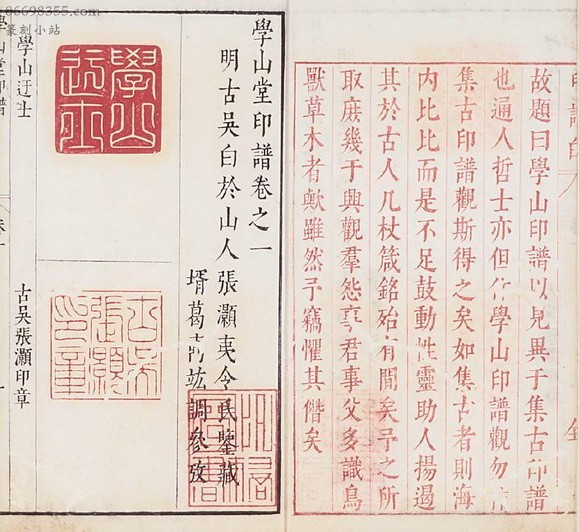 故題曰學山印譜以見異于集古印譜
也通人哲士亦但作學山印譜觀勿作
集古印譜觀斯得之矣如集古者則海
內比比而是不足鼓動性靈助人揚遏
其於古人几杖箴銘殆有間矣予之所
取庶幾于興觀羣怨事君事父多識鳥
獸草木者歟雖然予竊懼其僭矣
學山堂印譜卷之一
明古吳白於山人張灝夷令氏鑒藏
壻葛
調參攷
學山迂士
學山迂士
古吳張灝印章
古吳張灝印章
86698355.com
篆刻小站
學山堂印譜